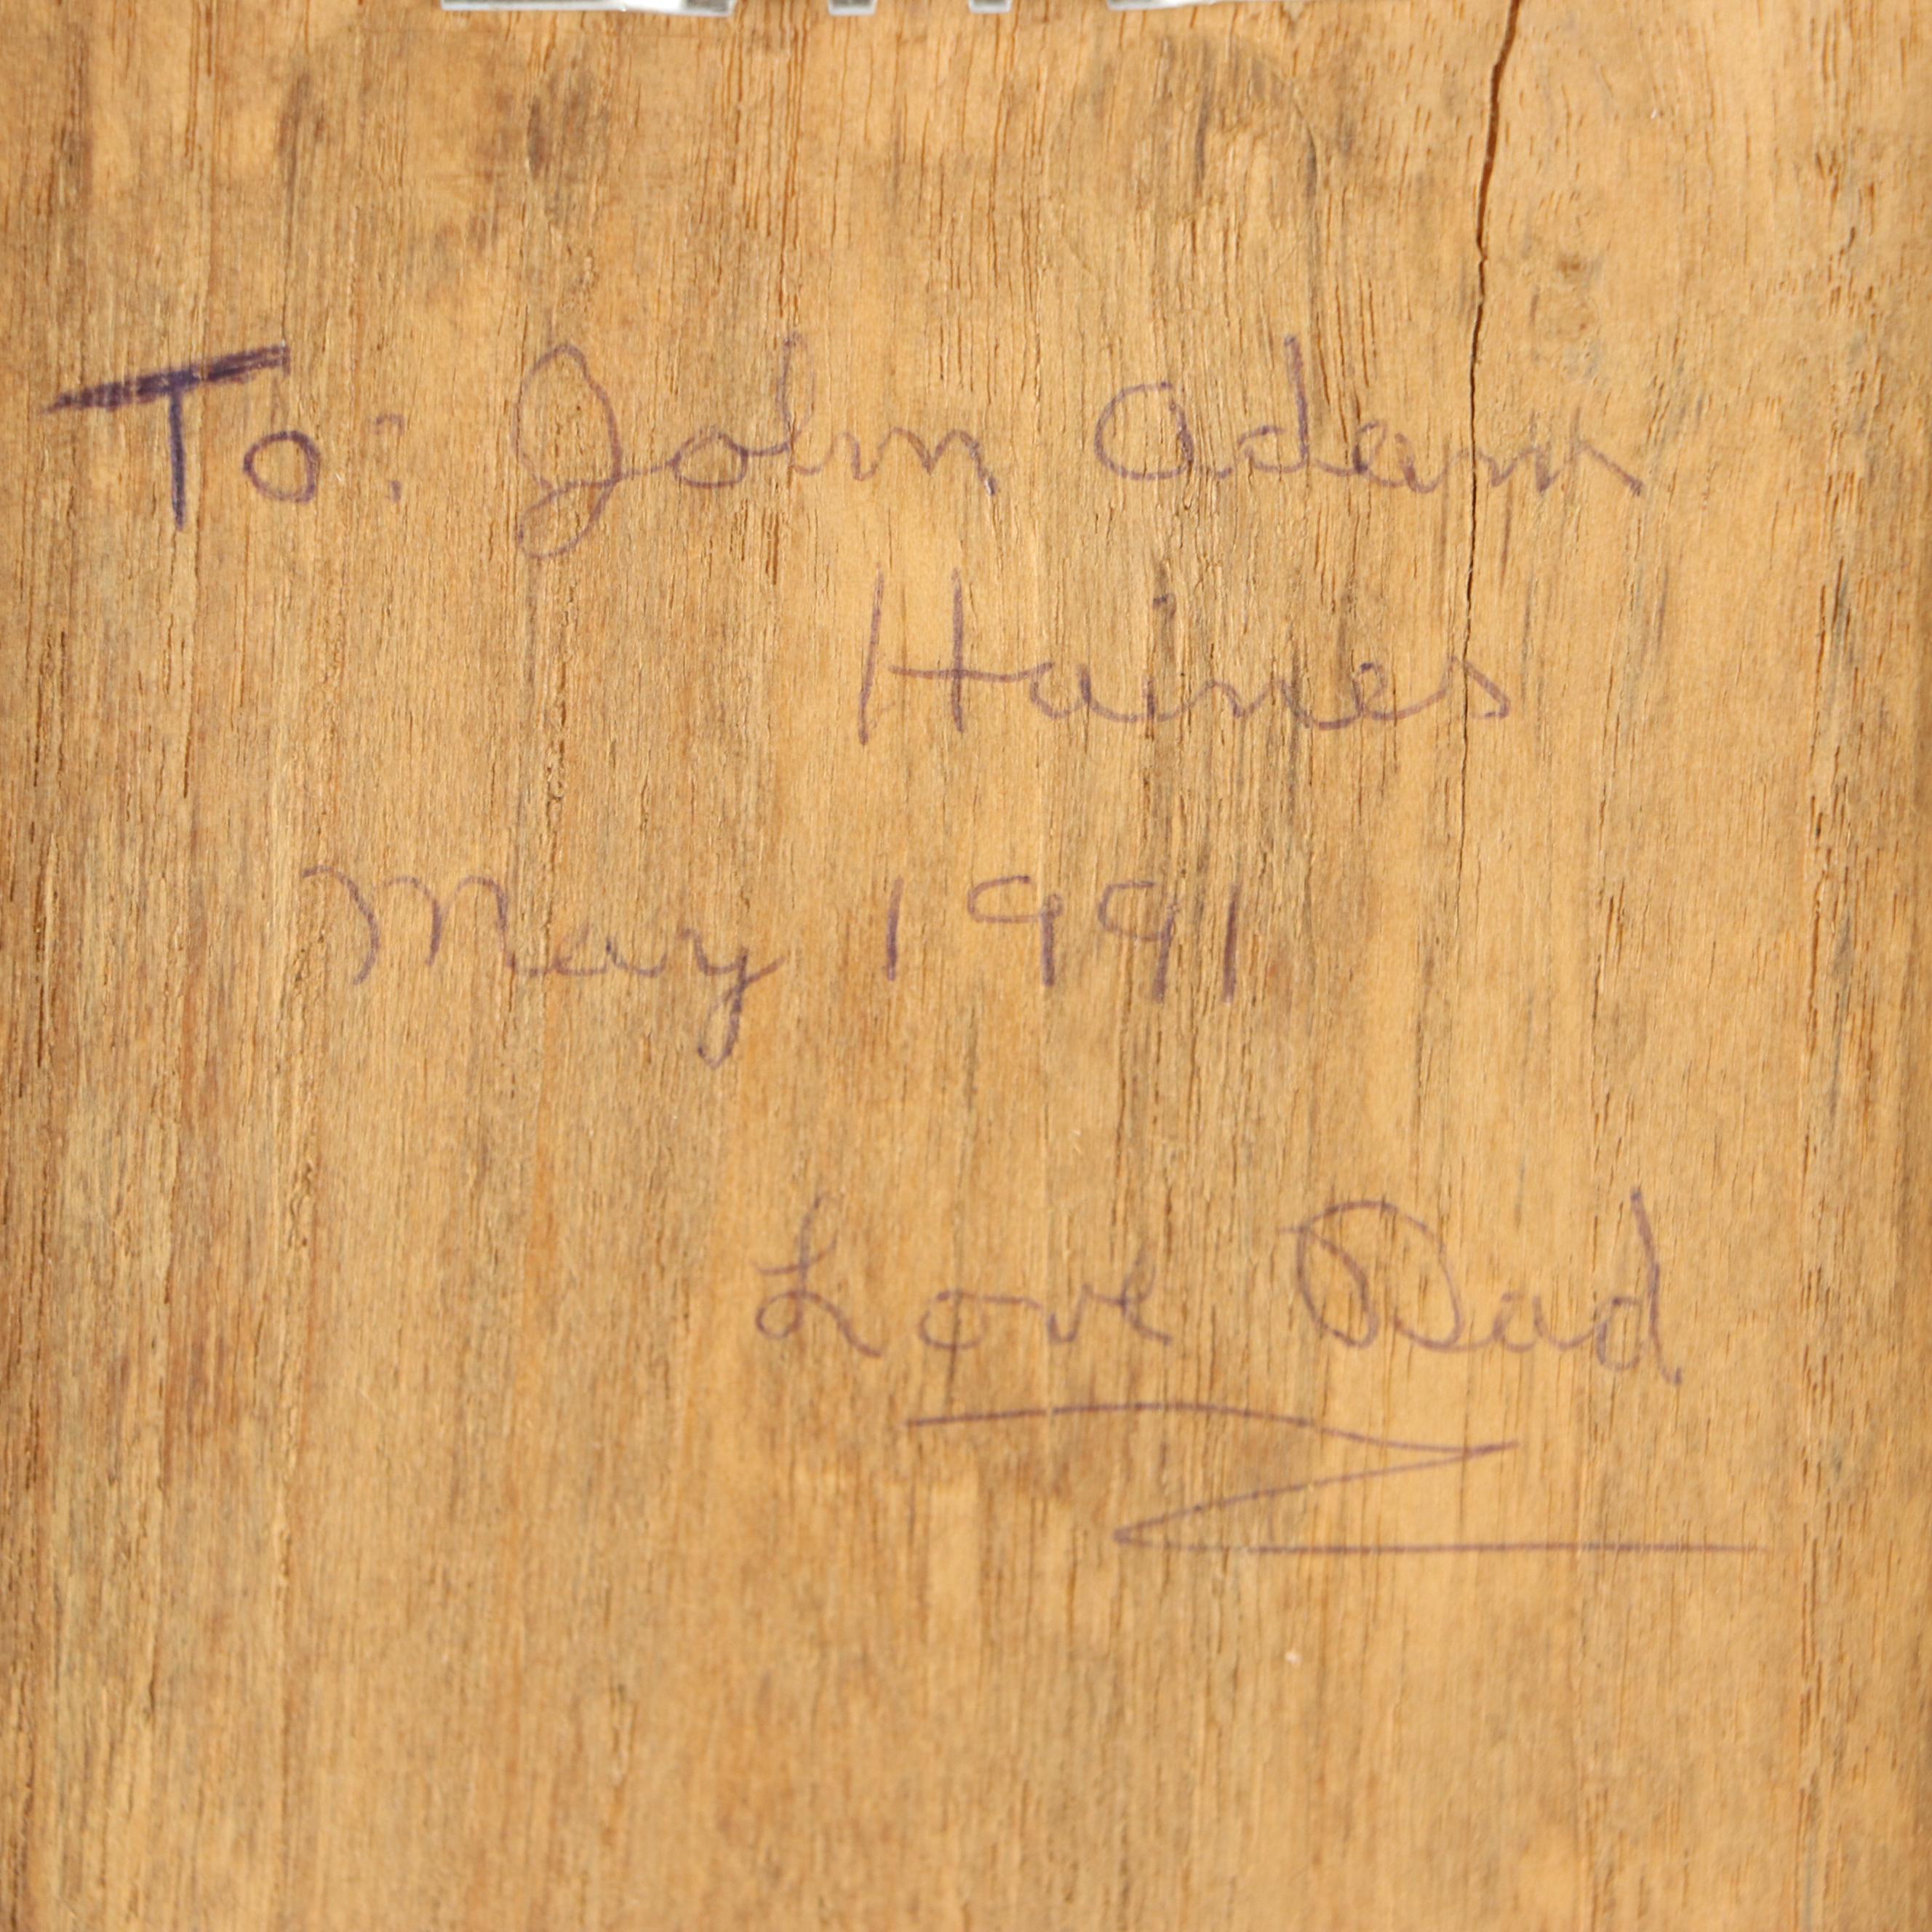 To: John Adam
Haines
May 1991
Love Dad